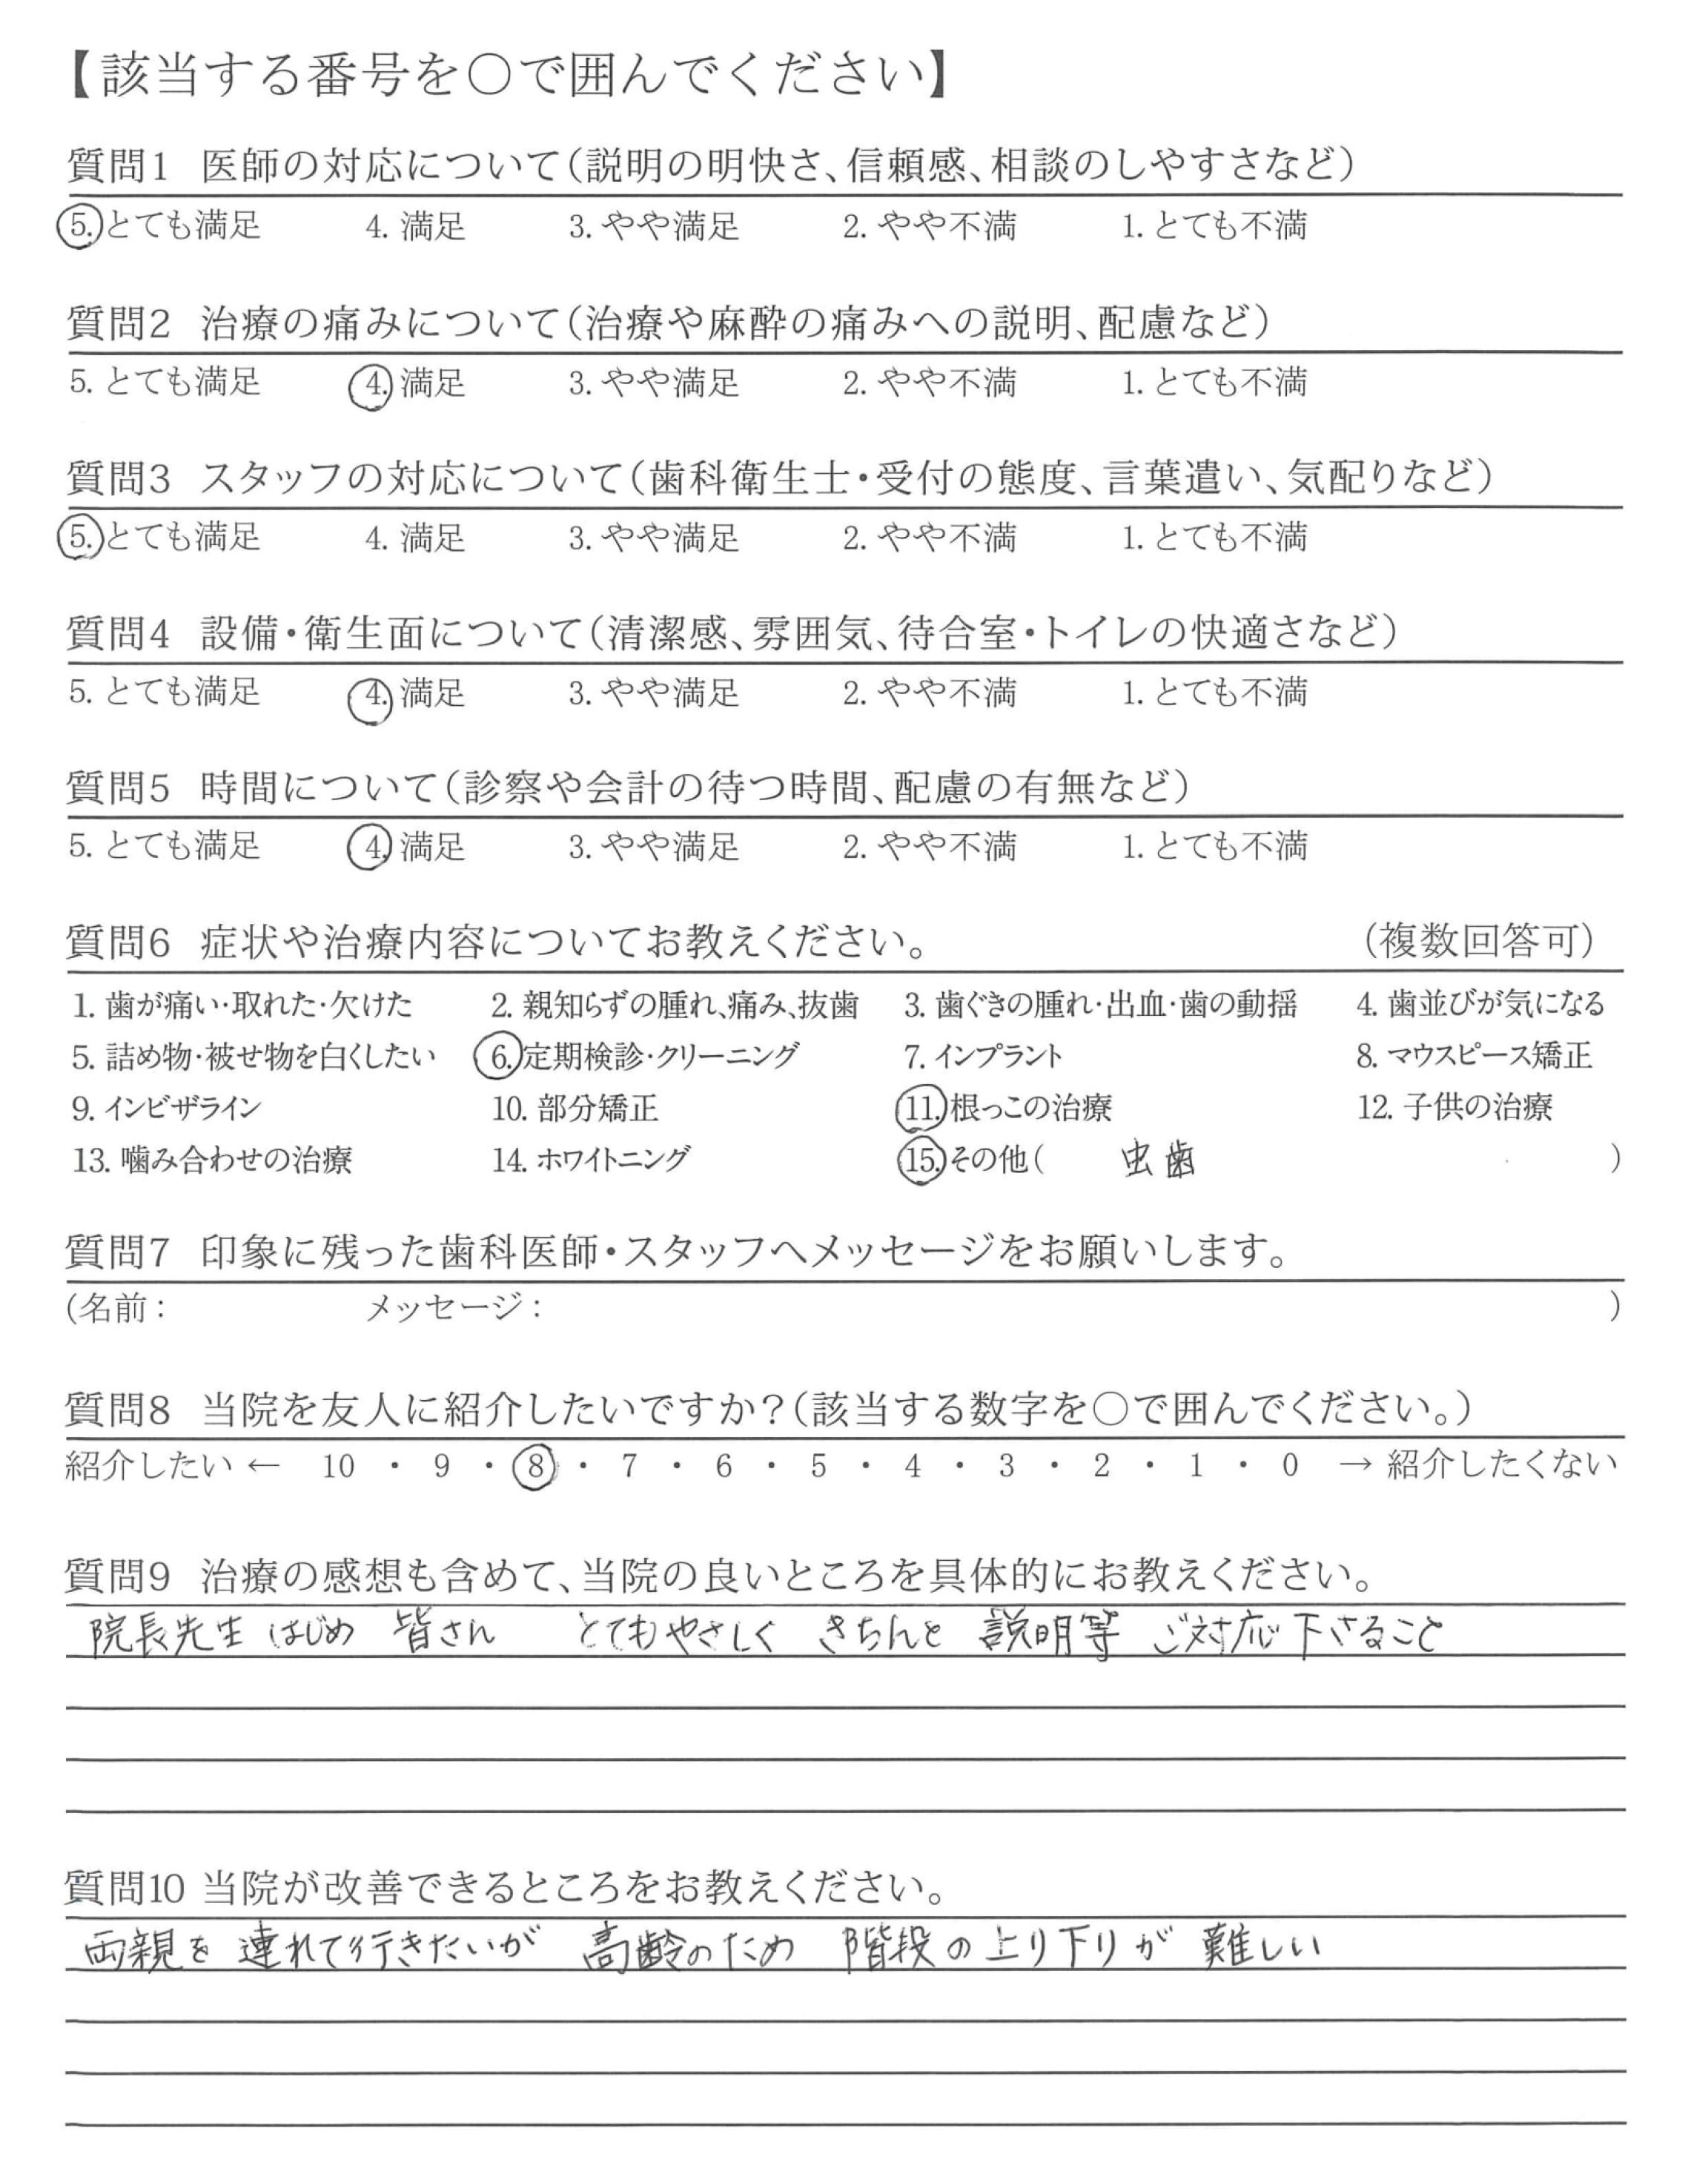 【該当する番号を○で囲んでください】
質問1 医師の対応について(説明の明快さ、信頼感、相談のしやすさなど)
5. とても満足 4. 満足 3. やや満足 2. やや不満 1. とても不満
質問2 治療の痛みについて(治療や麻酔の痛みへの説明、配慮など)
5. とても満足 4. 満足 3. やや満足 2. やや不満 1. とても不満
質問3 スタッフの対応について(歯科衛生士・受付の態度、言葉遣い、気配りなど)
5. とても満足 4. 満足 3. やや満足 2. やや不満 1. とても不満
質問4 設備・衛生面について(清潔感、雰囲気、待合室・トイレの快適さなど)
5. とても満足 4. 満足 3. やや満足 2. やや不満 1. とても不満
質問5 時間について(診察や会計の待つ時間、配慮の有無など)
5. とても満足 4. 満足 3. やや満足 2. やや不満 1. とても不満
質問6 症状や治療内容についてお教えください。 (複数回答可)
1. 歯が痛い・取れた・欠けた 2. 親知らずの腫れ、痛み、抜歯 3. 歯ぐきの腫れ・出血・歯の動揺 4. 歯並びが気になる
5. 詰め物・被せ物を白くしたい 6. 定期検診・クリーニング 7. インプラント 8. マウスピース矯正
9. インビザライン 10. 部分矯正 11. 根っこの治療 12. 子供の治療
13. 噛み合わせの治療 14. ホワイトニング 15. その他( 虫歯 )
質問7 印象に残った歯科医師・スタッフへメッセージをお願いします。
(名前: メッセージ: )
質問8 当院を友人に紹介したいですか?(該当する数字を○で囲んでください。)
紹介したい ← 10 ・ 9 ・ 8 ・ 7 ・ 6 ・ 5 ・ 4 ・ 3 ・ 2 ・ 1 ・ 0 → 紹介したくない
質問9 治療の感想も含めて、当院の良いところを具体的にお教えください。
院長先生 はじめ 皆さん とてもやさしく きちんと 説明等 ご対応 下さること
質問10 当院が改善できるところをお教えください。
両親を 連れて行きたいが 高齢のため 階段の上り下りが 難しい